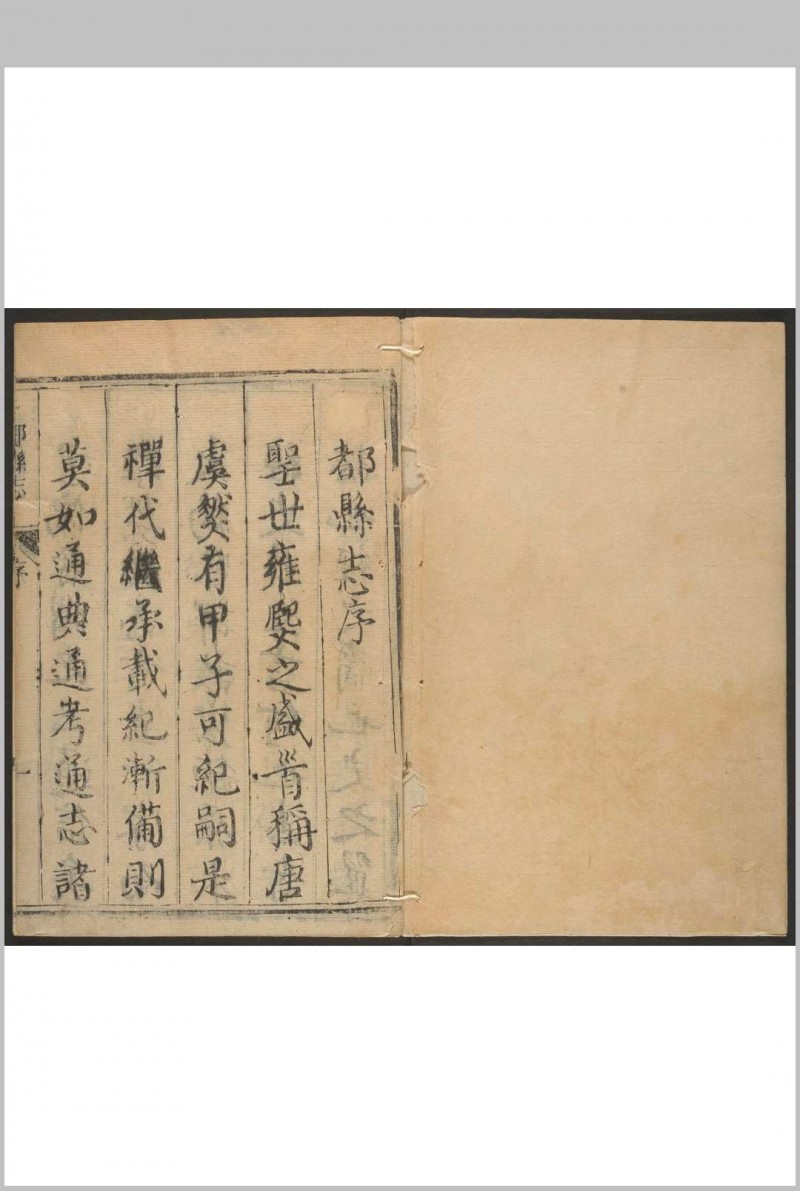 都縣志序
聖世雍熙之盛首稱唐
虞然有甲子可紀嗣是
禪代繼承載紀漸備則
莫如通典通考通志諸
縣志
序
一